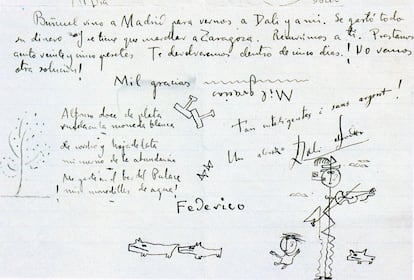 Buñuel vino a Madrid para vernos a Dalí y a mí. Se gastó todo
su dinero y se tiene que marchar a Zaragoza. Recurrimos a ti. Préstanos
ciento veinte y cinco pesetas. Te devolveremos dentro de cinco días. ¡No vemos
otra solución!
Mil gracias
Mil gracias
Alfonso doce de plata
la moneda blanca
de y hojadelata
mi de la abundancia
el te del Palace
¡ mis monedillas de agua!
Tan inteligentes i sans argent!
Un abrazo Dalí
Federico